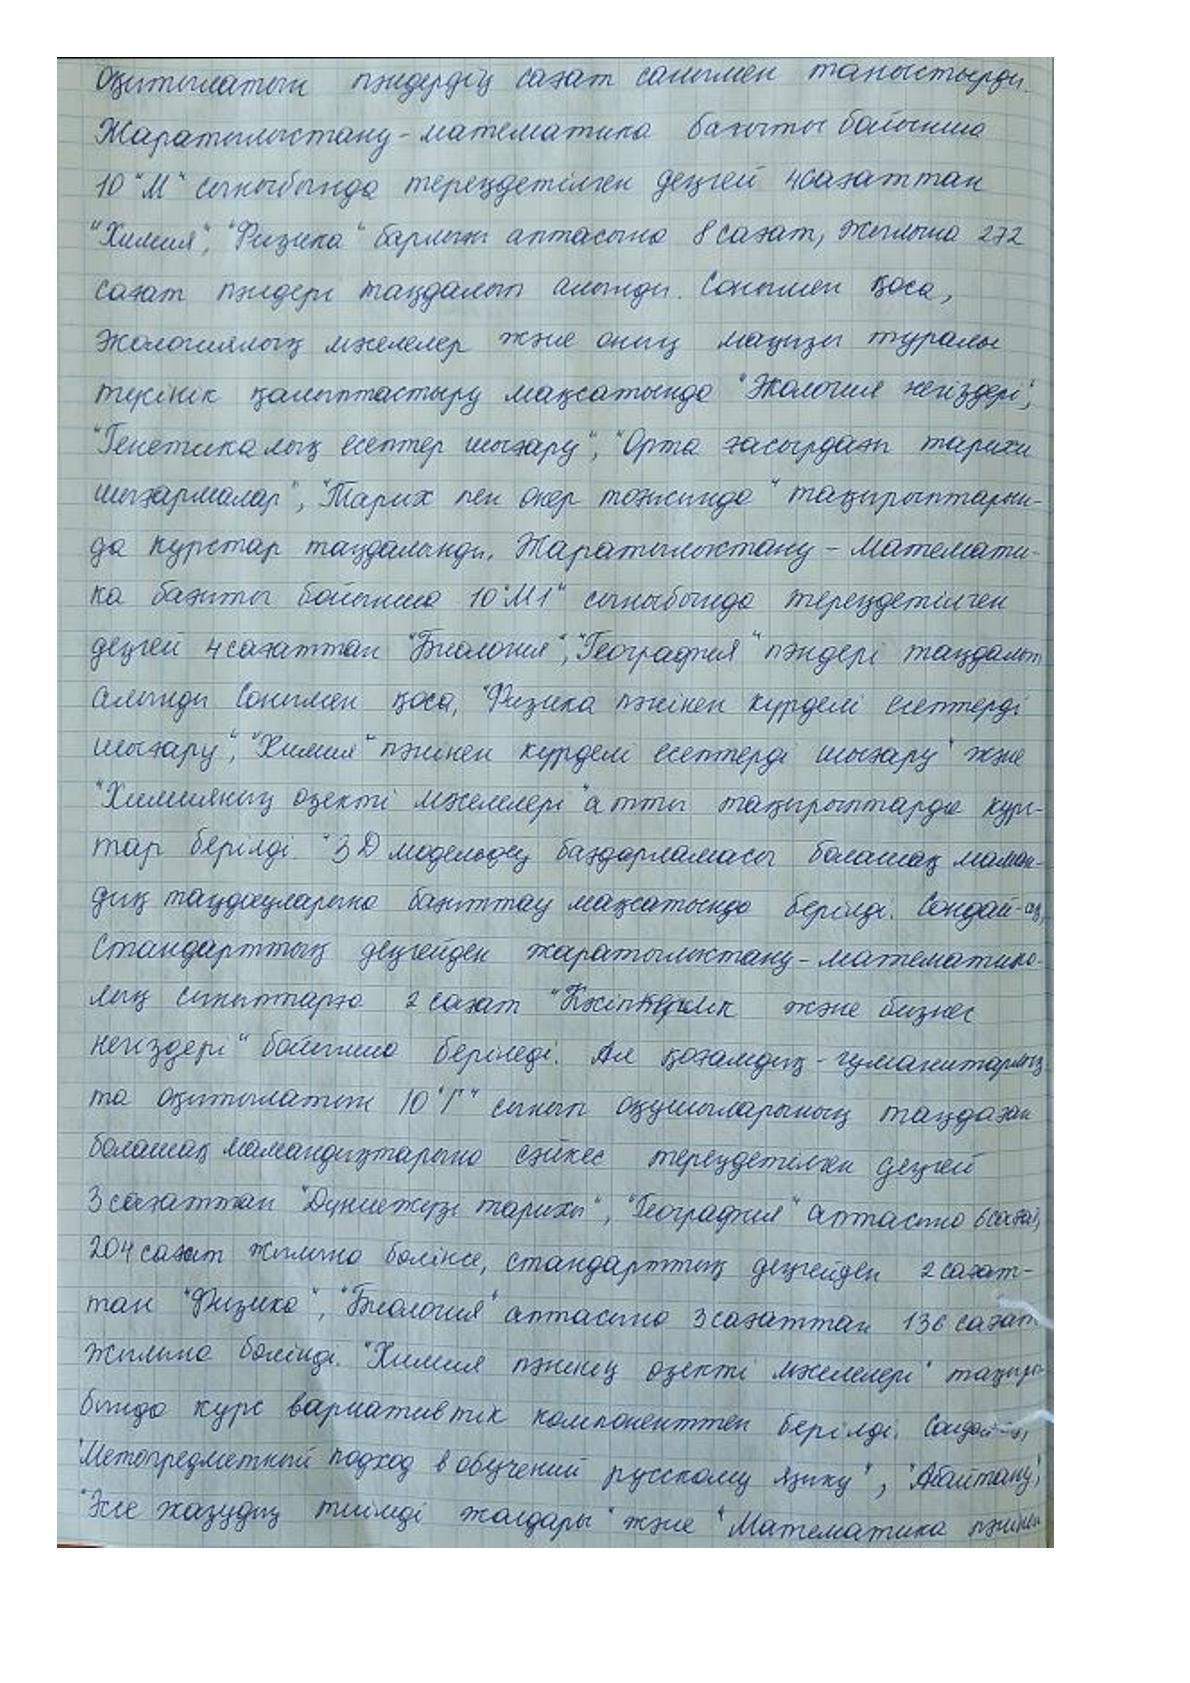 Оқытылатын пәндердің сағат санымен таныстырды.
Жаратылыстану-математика бағыты бойынша
10 "М" сыныбында тереңдетілген деңгей 4 сағаттан
"Химия", "Физика" барлығы аптасына 8 сағат, жылына 272
сағат пәндері таңдалып алынды. Сонымен қоса,
экологиялық мәселелер және оның маңызы туралы
түсінік қалыптастыру мақсатында "Экология негіздері",
"Генетикалық есептер шығару", "Орта ғасырдағы тарихи
шығармалар", "Тарих пен өнер тоғысында" тақырыптарын-
да курстар таңдалынды. Жаратылыстану - Математи-
ка бағыты бойынша 10 "М1" сыныбында тереңдетілген
деңгей 4 сағаттан "Биология", "География" пәндері таңдалып
алынды Сонымен қоса, "Физика пәнінен күрделі есептерді
шығару", "Химия" пәнінен күрделі есептерді шығару" және
"Химияның өзекті мәселелері" атты тақырыптарда курс-
тар берілді. "3D модельдеу бағдарламасы болашақ маман-
дық таңдауларына бағыттау мақсатында берілді. Сондай-ақ,
Стандарттық деңгейден жаратылыстану-математика-
лық сыныптарға 2 сағат "Кәсіпкерлік және бизнес
негіздері" бойынша беріледі. Ал қоғамдық-гуманитарлық
та оқытылатын 10 "Г" сынып оқушыларының таңдаған
болашақ мамандықтарына сәйкес тереңдетілген деңгей
3 сағаттан "Дүниежүзі тарихы", "География" аптасына 6 сағат,
204 сағат жылына бөлінсе, стандарттық деңгейден 2 сағат-
тан "Физика", "Биология" аптасына 3 сағаттан 136 сағат
жылына бөлінді. "Химия пәнінің өзекті мәселелері" тақыры-
бында курс вариативтік компоненттен берілді. Сондай-ақ,
"Метапредметный подход в обучений русскому языку", "Абайтану",
"Эссе жазудың тиімді жолдары" және "Математика пәнінен